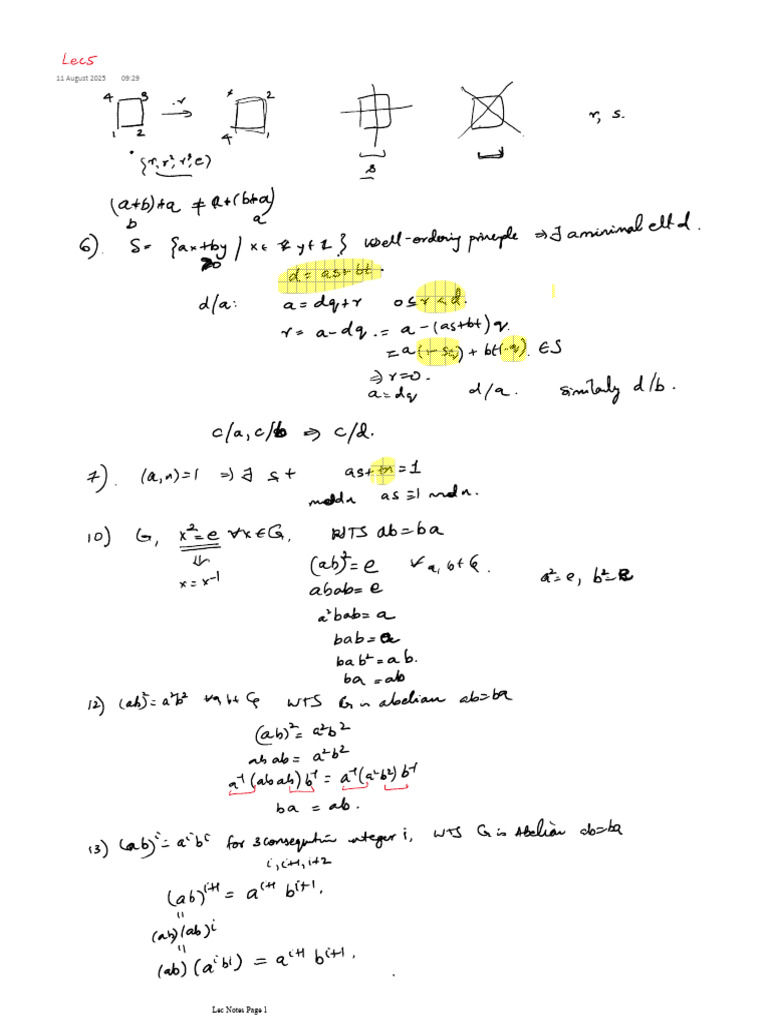 Lec5
11 August 2025 09:29
4 3 .r x 2
1 2 4 1
r, s.
{r, r², r³, e} s
(a+b)+a ≠ a+(b+a)
b a
6). S = {ax+by / x∈ℤ y∈ℤ} Well-ordering principle ⇒ ∃ a minimal elt d.
>0
d = as+bt.
d/a: a = dq+r 0≤r<d.
r = a-dq. = a-(as+bt)q.
= a(1-sq)+bt(-q). ∈S
⇒ r=0.
a = dq d/a. similarly d/b.
c/a, c/b ⇒ c/d.
7). (a,n)=1 ⇒ ∃ s t as+tn=1
mod n as≡1 mod n.
10) G, x²=e ∀x∈G, WTS ab=ba
⇓
x = x⁻¹
(ab)²=e ∀ a, b∈G.
a²=e, b²=e
abab=e
a²bab=a
bab=a
bab²=ab.
ba=ab
12) (ab)²=a²b² ∀a b∈G WTS G is abelian ab=ba
(ab)²=a²b²
abab=a²b²
a⁻¹(abab)b⁻¹=a⁻¹(a²b²)b⁻¹
ba = ab.
13) (ab)ⁱ=aⁱbⁱ for 3 consequtive integer i, WTS G is Abelian ab=ba
i, i+1, i+2
(ab)ⁱ⁺¹ = aⁱ⁺¹ bⁱ⁺¹.
"
(ab)(ab)ⁱ
"
(ab)(aⁱbⁱ) = aⁱ⁺¹ bⁱ⁺¹.
Lec Notes Page 1